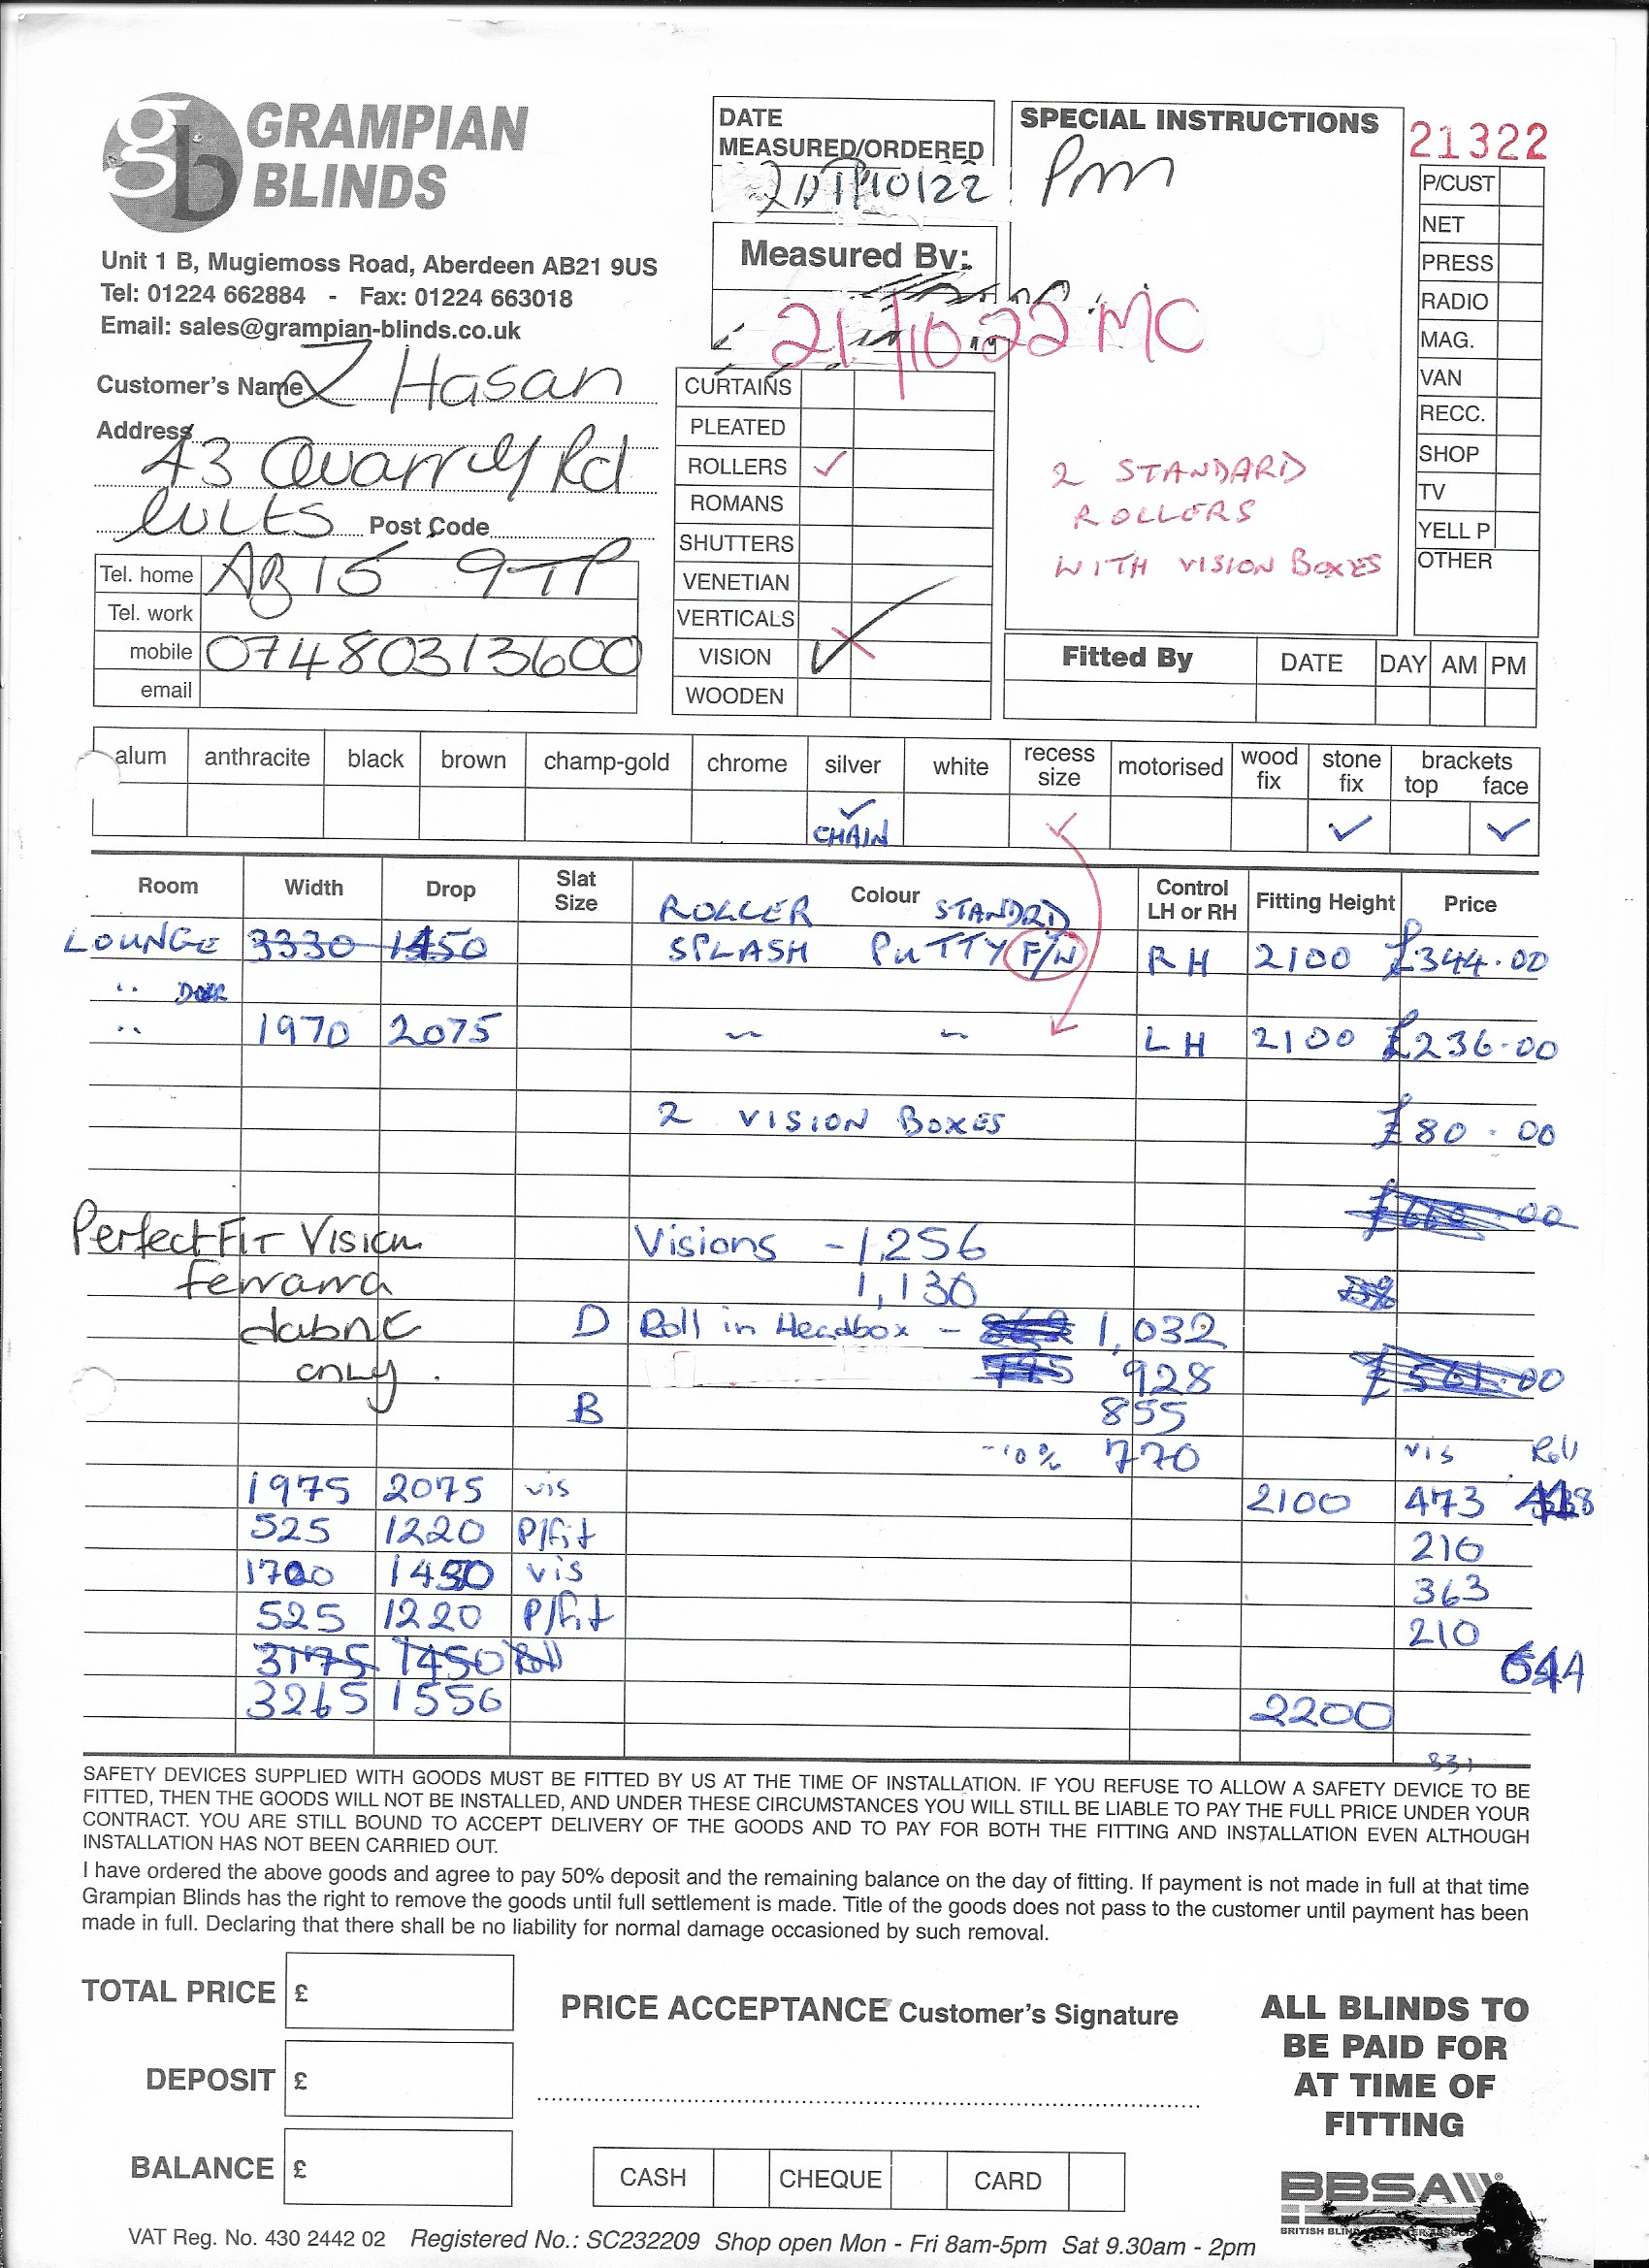 GRAMPIAN
BLINDS
Unit 1 B, Mugiemoss Road, Aberdeen AB21 9US
Tel: 01224 662884 - Fax: 01224 663018
Email: sales@grampian-blinds.co.uk
DATE
MEASURED/ORDERED
10/22
Measured By:
21.10.22 MC
SPECIAL INSTRUCTIONS
Pm
2 STANDARD
ROLLERS
WITH VISION BOXES
21322
P/CUST
NET
PRESS
RADIO
MAG.
VAN
RECC.
SHOP
TV
YELL P
OTHER
Customer's Name Z Hasan
Address
43 Quarry Rd
CULTS Post Code
Tel. home AB15 9TP
Tel. work
mobile 07480313600
email
CURTAINS
PLEATED
ROLLERS ✓
ROMANS
SHUTTERS
VENETIAN
VERTICALS
VISION ✓
WOODEN
Fitted By DATE DAY AM PM
alum anthracite black brown champ-gold chrome silver white recess size motorised wood fix stone fix brackets top face
✓ CHAIN ✓ ✓ ✓
Room Width Drop Slat Size Colour Control LH or RH Fitting Height Price
ROLLER STANDRD
LOUNGE 3330 1450 SPLASH PUTTY F/W RH 2100 £344.00
" DOOR
" 1970 2075 " " LH 2100 £236.00
2 VISION BOXES £80.00
£660.00
Perfect FIT Vision Visions - 1,256
Ferrara 1,130
fabric D Roll in Headbox - 1,032
only. 928 £561.00
B 855
-10% 770 vis Roll
1975 2075 vis 2100 473
525 1220 P/fit 210
1700 1450 vis 363
525 1220 P/fit 210
3175 1450 Roll 644
3265 1550 2200
331
SAFETY DEVICES SUPPLIED WITH GOODS MUST BE FITTED BY US AT THE TIME OF INSTALLATION. IF YOU REFUSE TO ALLOW A SAFETY DEVICE TO BE
FITTED, THEN THE GOODS WILL NOT BE INSTALLED, AND UNDER THESE CIRCUMSTANCES YOU WILL STILL BE LIABLE TO PAY THE FULL PRICE UNDER YOUR
CONTRACT. YOU ARE STILL BOUND TO ACCEPT DELIVERY OF THE GOODS AND TO PAY FOR BOTH THE FITTING AND INSTALLATION EVEN ALTHOUGH
INSTALLATION HAS NOT BEEN CARRIED OUT.
I have ordered the above goods and agree to pay 50% deposit and the remaining balance on the day of fitting. If payment is not made in full at that time
Grampian Blinds has the right to remove the goods until full settlement is made. Title of the goods does not pass to the customer until payment has been
made in full. Declaring that there shall be no liability for normal damage occasioned by such removal.
TOTAL PRICE £
DEPOSIT £
BALANCE £
PRICE ACCEPTANCE Customer's Signature
CASH CHEQUE CARD
ALL BLINDS TO
BE PAID FOR
AT TIME OF
FITTING
BBSA
VAT Reg. No. 430 2442 02 Registered No.: SC232209 Shop open Mon - Fri 8am-5pm Sat 9.30am - 2pm